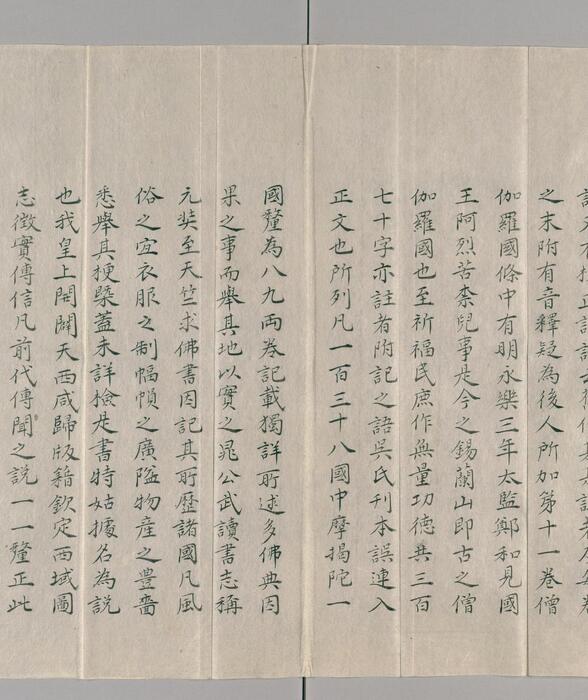 之末附有音釋疑為後人所加第十一卷僧
伽羅國條中有明永樂三年太監鄭和見國
王阿烈苦柰兒事是今之錫蘭山即古之僧
伽羅國也至祈福民庶作無量功德共三百
七十字亦註者附記之語吳氏刊本誤連入
正文也所列凡一百三十八國中摩揭陀一
國釐為八九兩卷記載獨詳所述多佛典因
果之事而舉其地以實之晁公武讀書志稱
元奘至天竺求佛書因記其所歷諸國凡風
俗之宜衣服之制幅幀之廣隘物產之豐嗇
悉舉其梗槩蓋未詳檢是書特姑據名為說
也我皇上開闢天西咸歸版籍欽定西域圖
志徵實傳信凡前代傳聞之說一一釐正此